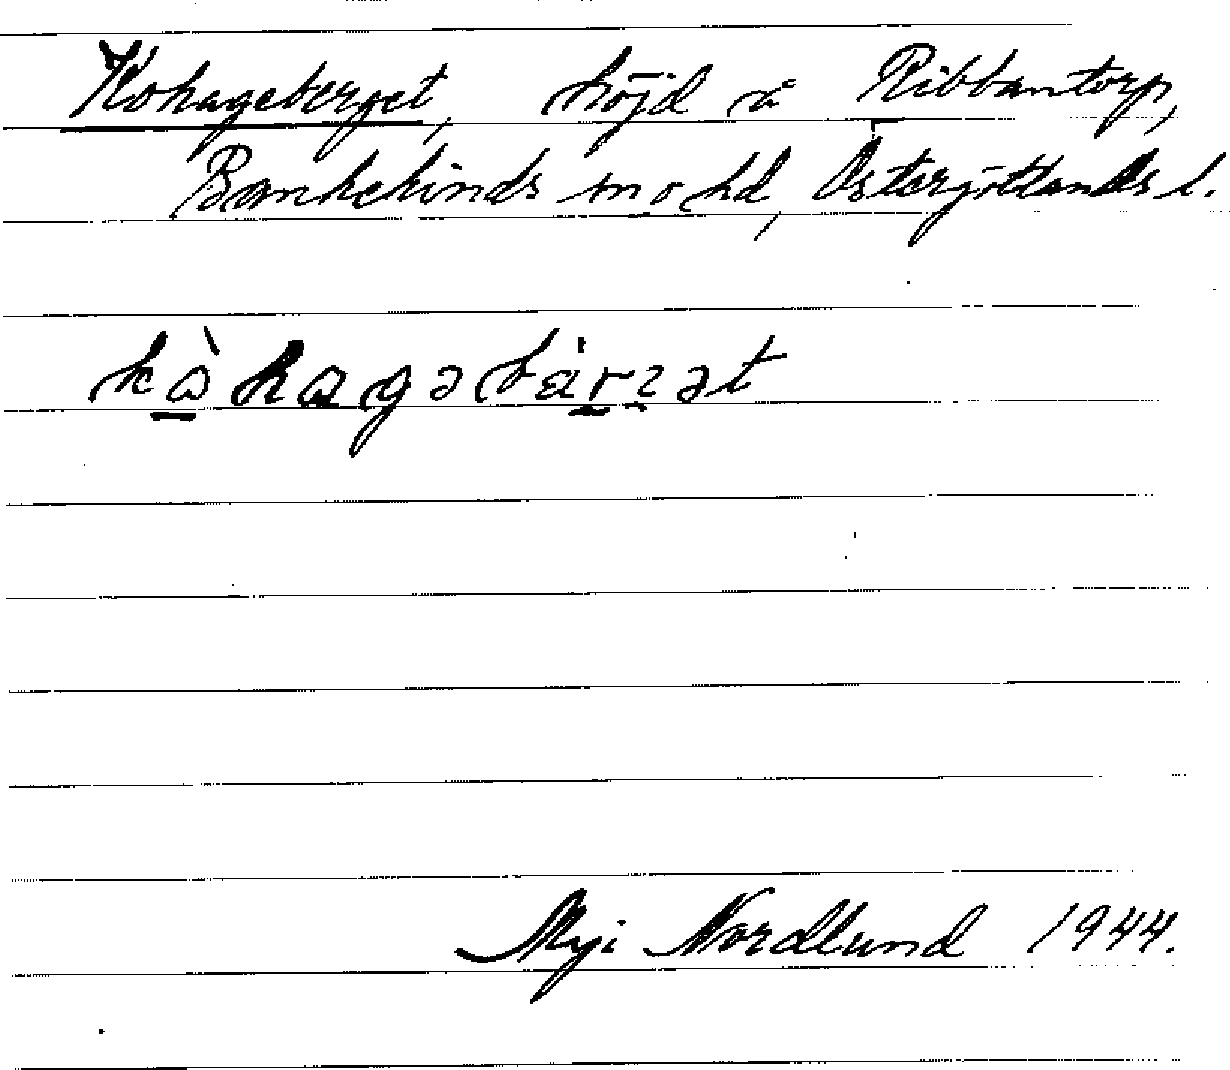 Kohageberget, höjd å Ribbantorp,
Bankekinds sn o hd, Östergötlands l.
kὰhagəbárzət
Myi Nordlund 1944.